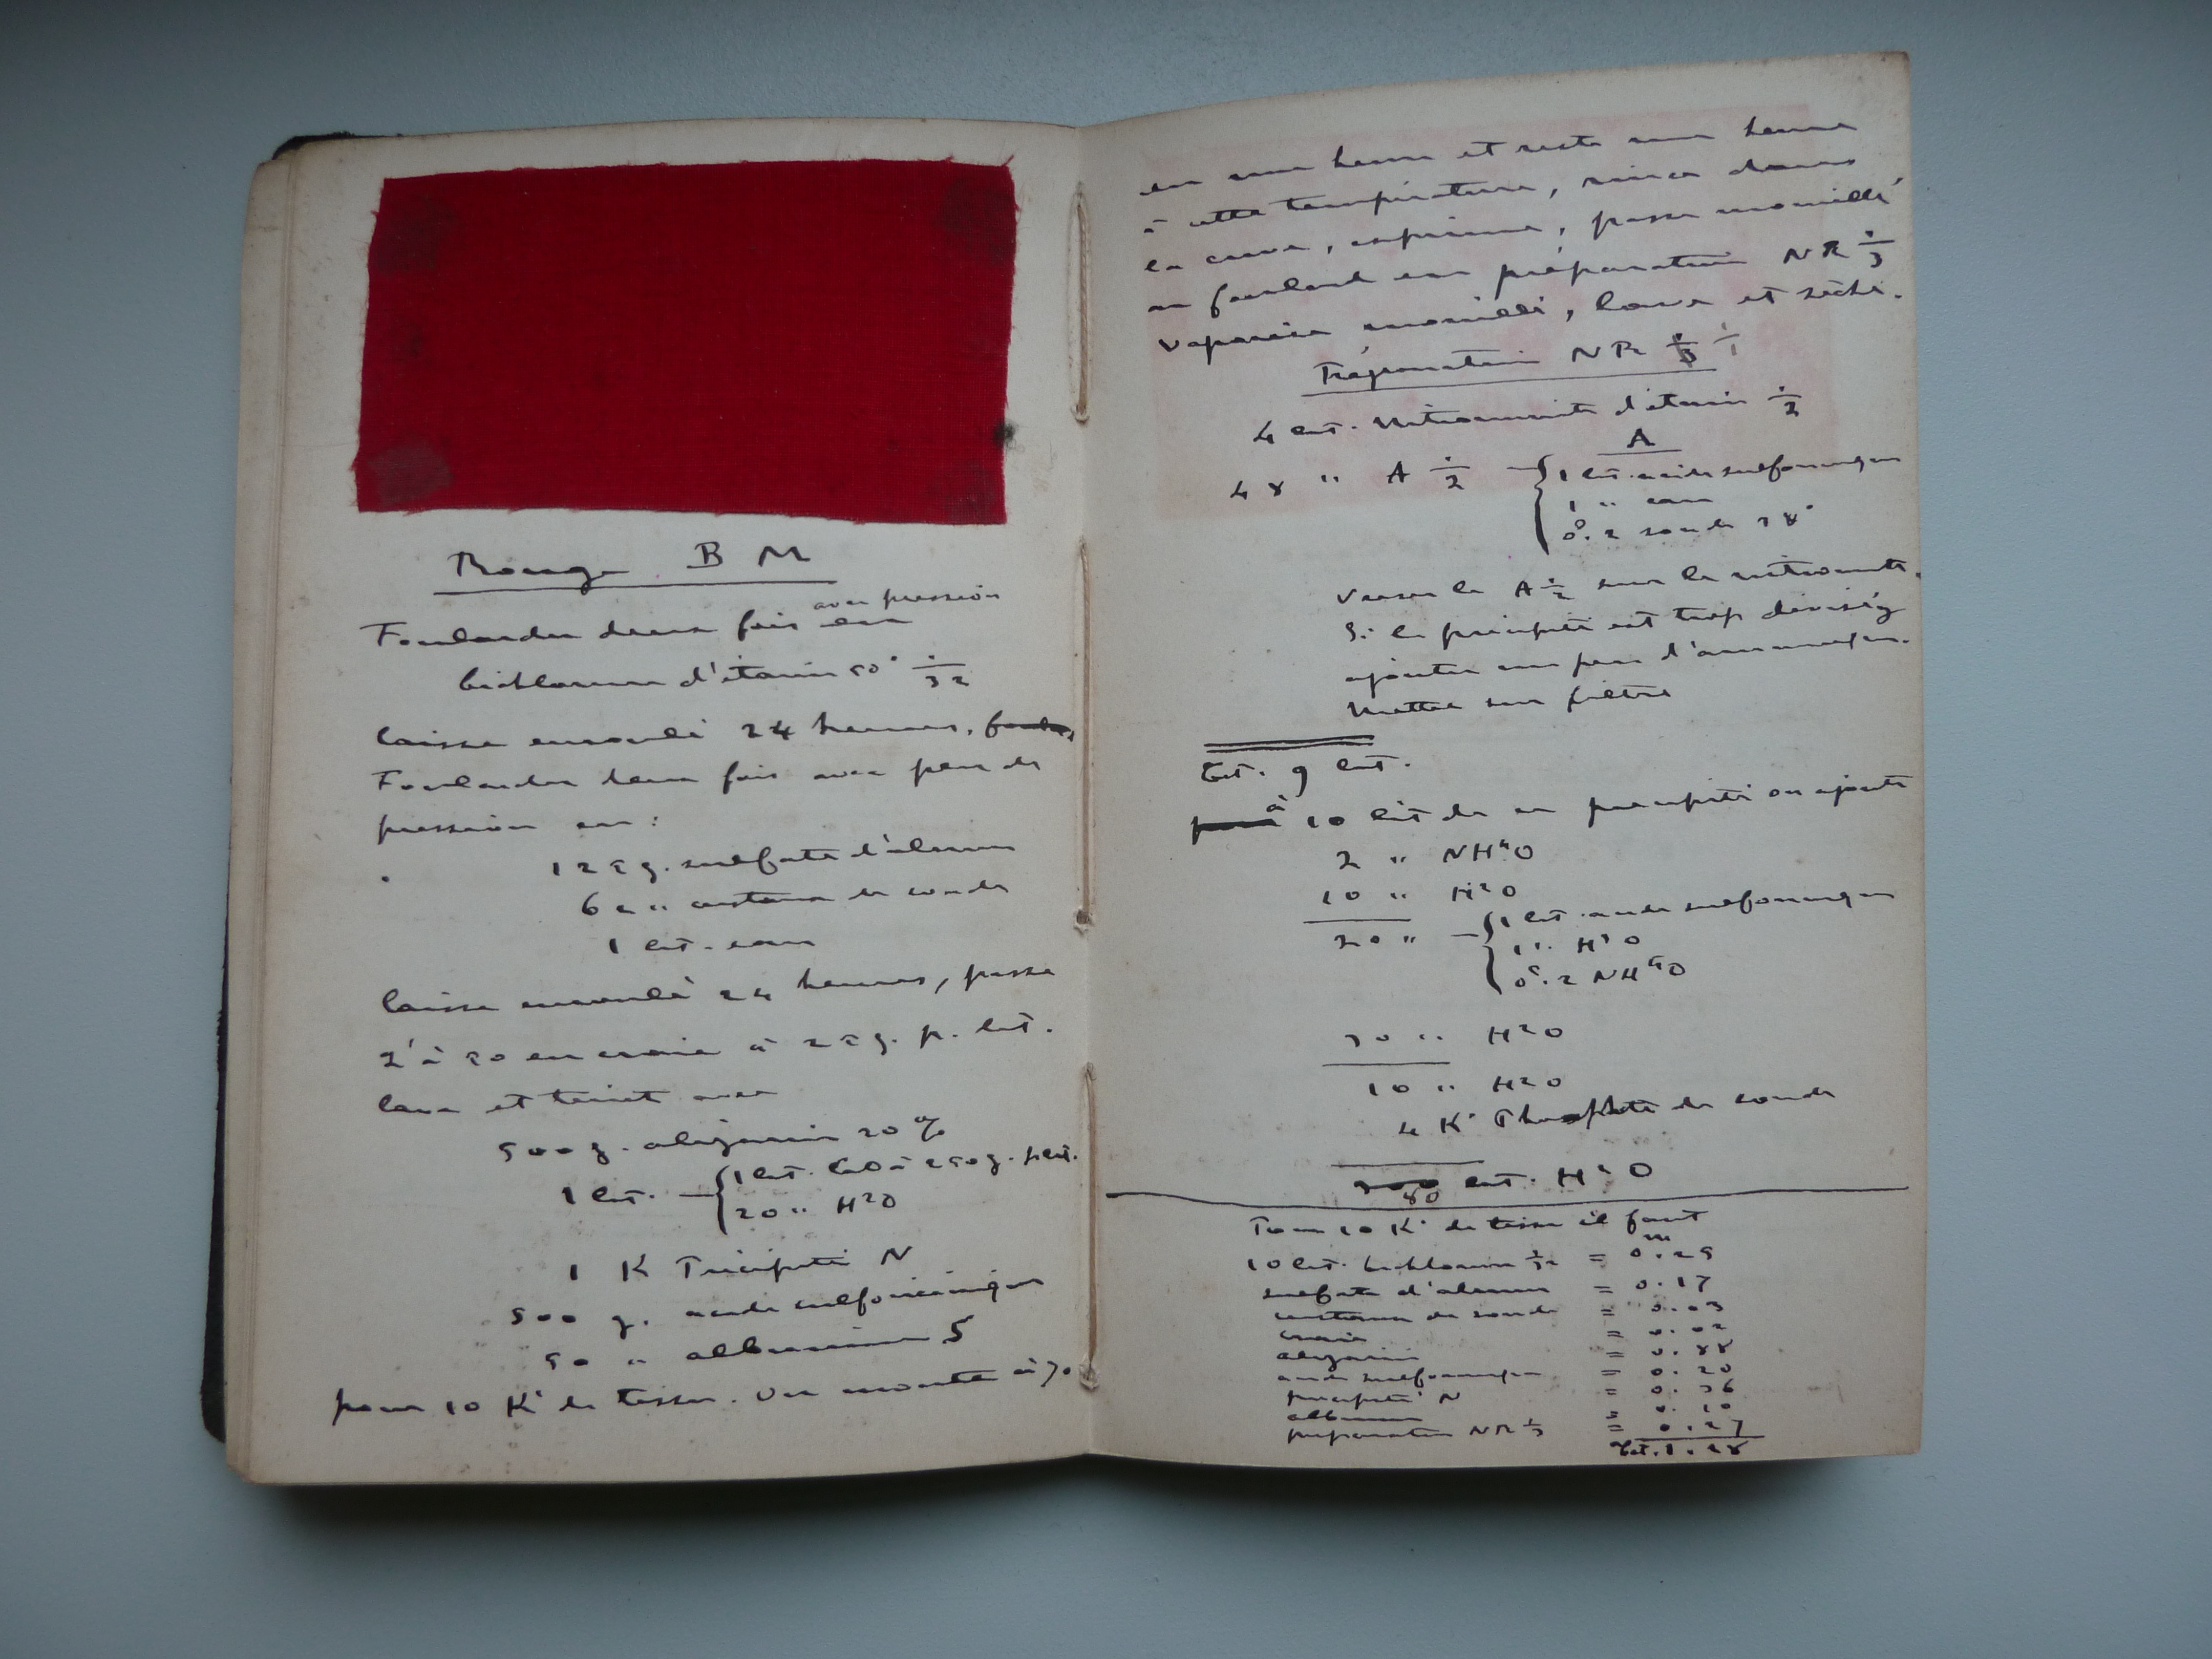 Rouge B M
avec pression
Foularder deux fois en
bichlorure d'étain 50° ÷ 32
laisse enroulé 24 heures,
Foularder deux fois avec peu de
pression en :
125 g. sulfate d'alumine
60 " cristaux de soude
1 lit. eau
laisse enroulé 24 heures, passe
2' à 50 en craie à 25 g. p. lit.
lave et teint avec
500 g. alizarine 20 %
1 lit. { 1 lit. CaO à 250 g. p. lit.
20 " H²O
1 K Précipité N
500 g. acide sulforicinique
50 " albumine S
pour 10 K° de tissu. On monte à 70
en une heure et reste une heure
à cette température, rince dans
la cuve, exprime, passe mouillé
au foulard en préparation NR ÷ 3
vaporise mouillé, lave et sèche.
Préparation NR ÷ 1
4 lit. nitromuriate d'étain ÷ 2
A
48 " A ÷ 2 { 1 lit. acide sulforicinique
1 " eau
0.2 soude 38°
Verser le A ÷ 2 sur le nitromuriate.
Si le précipité est trop divisé,
ajouter un peu d'ammoniaque.
Mettre sur filtre
Tot. 9 lit.
à 10 lit de ce précipité on ajoute
2 " NH⁴O
10 " H²O
20 " { 1 lit acide sulforicinique
1 " H²O
0.2 NH⁴O
30 " H²O
10 " H²O
4 K° Phosphate de soude
80 lit. H²O
Pour 10 K° de tissu il faut
10 lit. bichlorure ÷ 32 = 0.25
sulfate d'alumine = 0.17
cristaux de soude = 0.03
craie = 0.02
alizarine = 0.88
acide sulforicinique = 0.20
précipité N = 0.36
albumine = 0.10
préparation NR ÷ 3 = 0.27